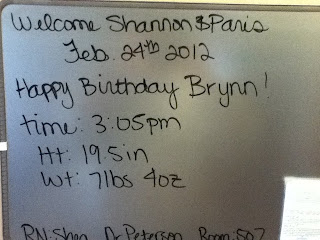 Welcome Shannon & Paris
Feb. 24th 2012
Happy Birthday Brynn!
time: 3:05pm
Ht: 19.5in
Wt: 7lbs 4oz
RN: Shea Dr. Peterson Room: 507